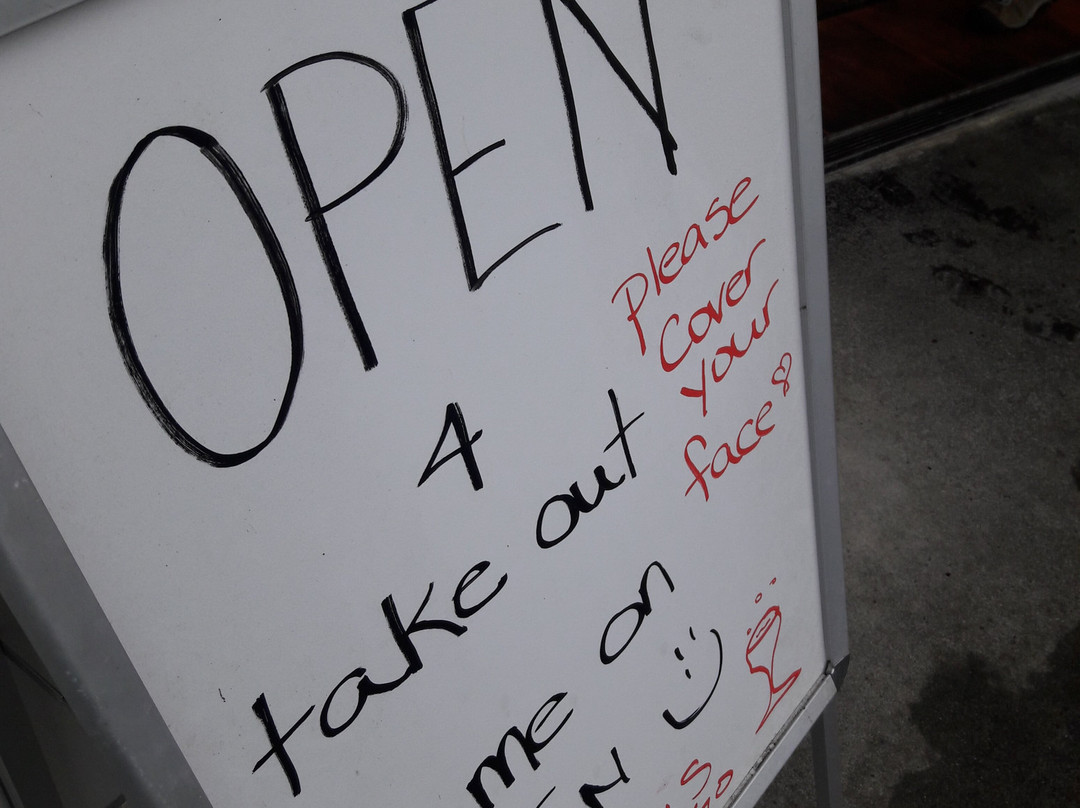 OPEN
4
take out
me on
Please
cover
your
face